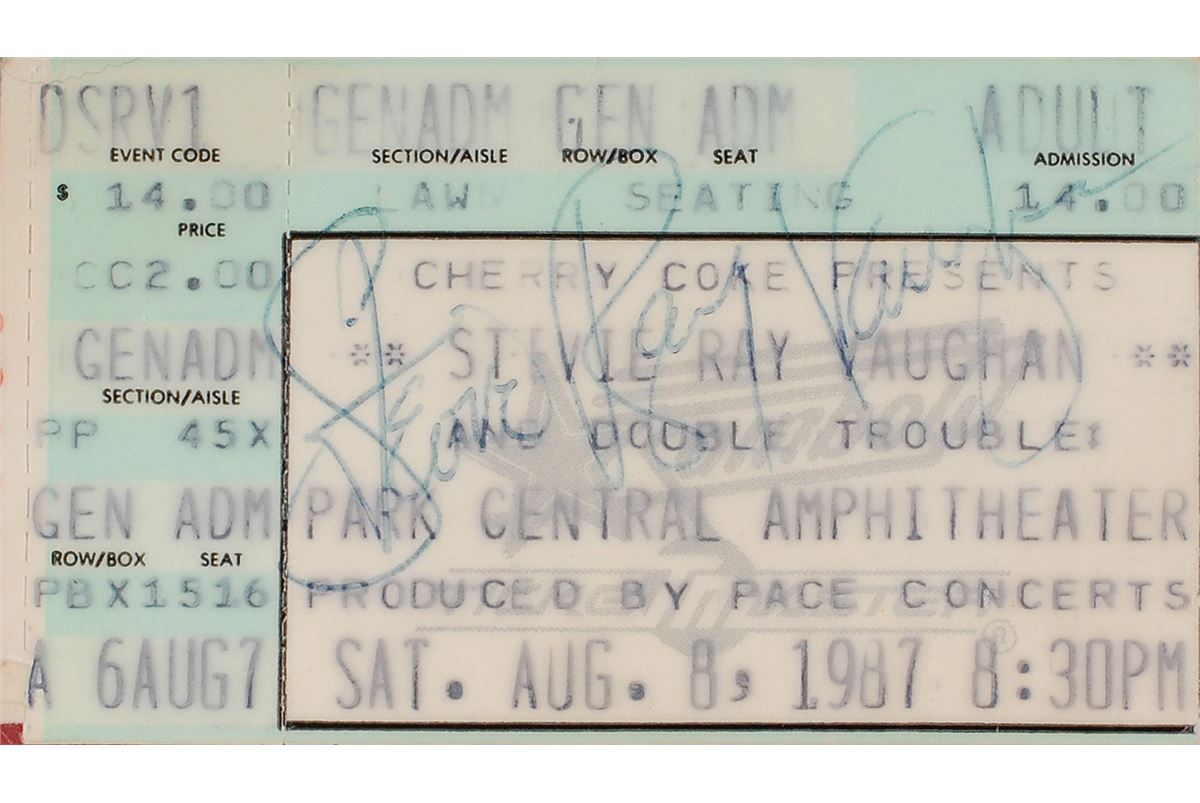 DSRV1 GENADM GEN ADM ADULT
EVENT CODE SECTION/AISLE ROW/BOX SEAT ADMISSION
$ 14.00 LAWN SEATING 14.00
PRICE
CC2.00 CHERRY COKE PRESENTS
GENADM ** STEVIE RAY VAUGHAN **
SECTION/AISLE
PP 45X AND DOUBLE TROUBLE:
GEN ADM PARK CENTRAL AMPHITHEATER
ROW/BOX SEAT
PBX1516 PRODUCED BY PACE CONCERTS
A 6AUG7 SAT. AUG. 8, 1987 8:30PM
Stevie Ray Vaughan
®